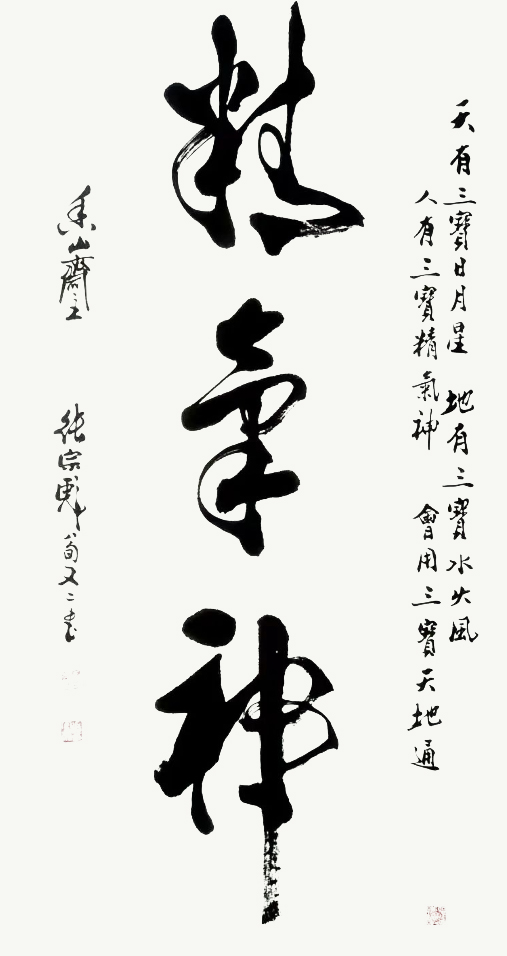 天有三寶日月星　地有三寶水火風
人有三寶精氣神　會用三寶天地通
精氣神
香山齋主
張宗彪
又二書